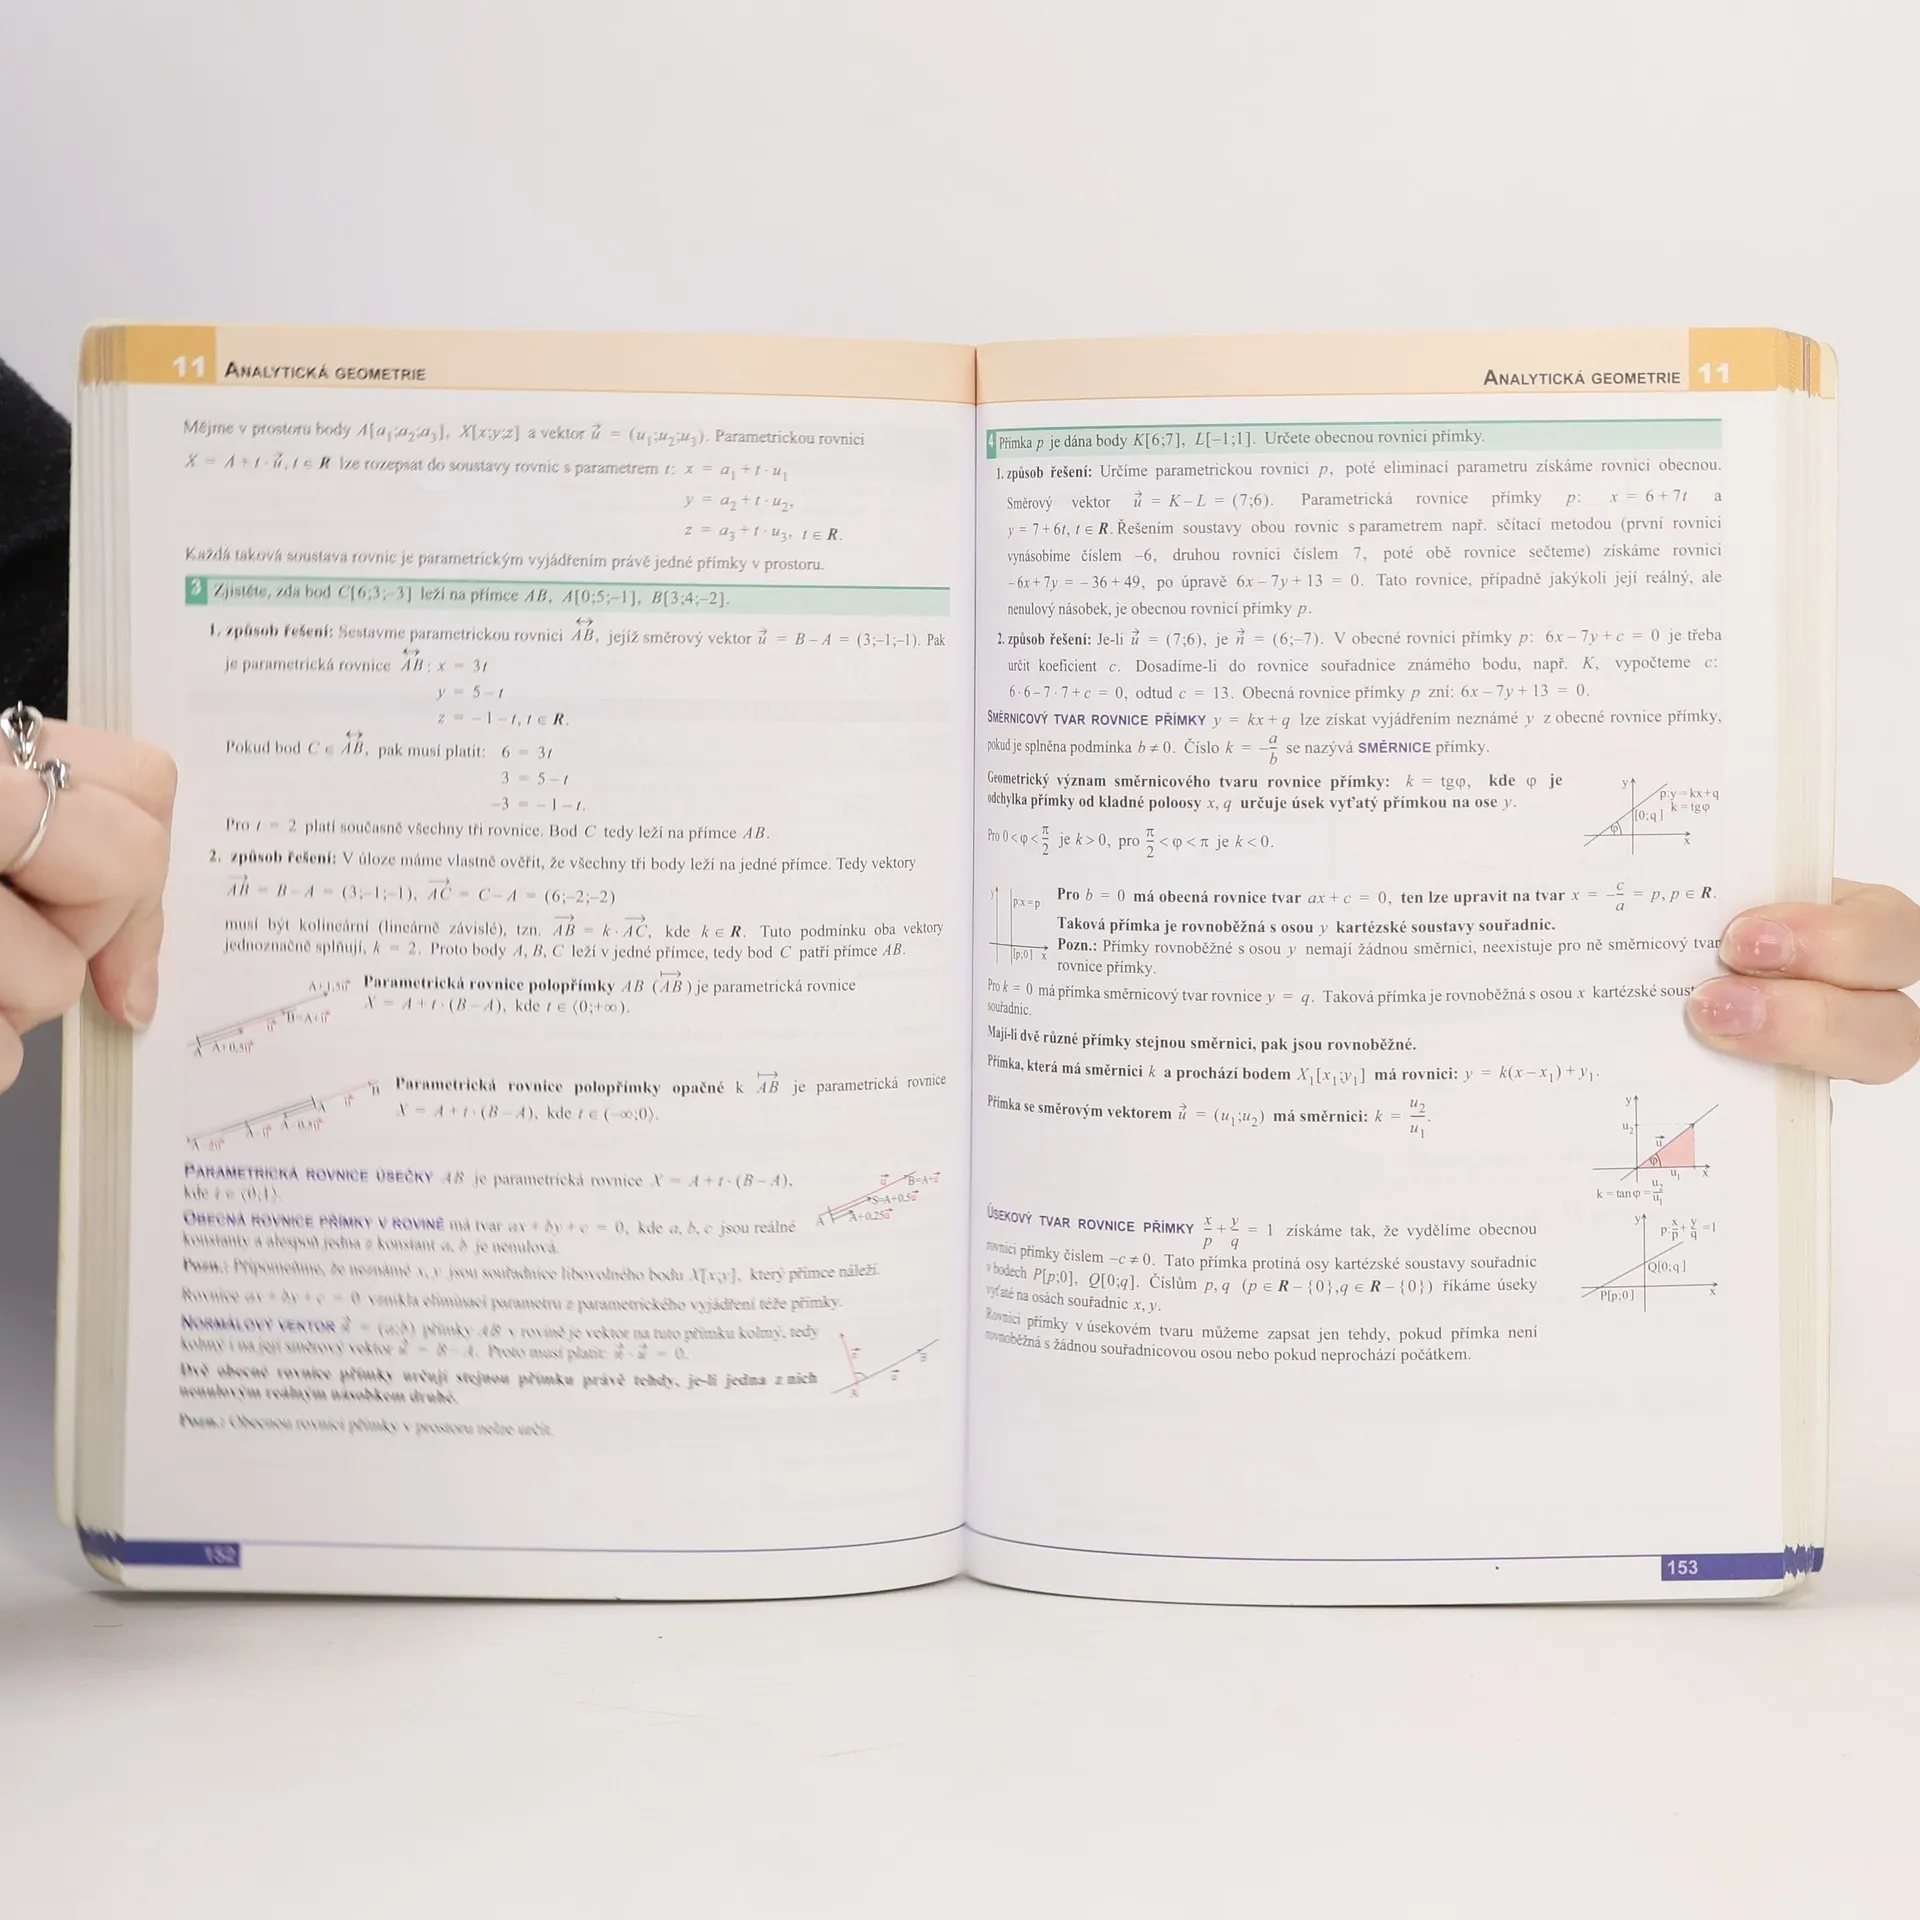 11 ANALYTICKÁ GEOMETRIE
Mějme v prostoru body A[a₁;a₂;a₃], X[x;y;z] a vektor u⃗ = (u₁;u₂;u₃). Parametrickou rovnici
X = A + t · u⃗, t ∈ R lze rozepsat do soustavy rovnic s parametrem t: x = a₁ + t · u₁
y = a₂ + t · u₂,
z = a₃ + t · u₃, t ∈ R.
Každá taková soustava rovnic je parametrickým vyjádřením právě jedné přímky v prostoru.
3 Zjistěte, zda bod C[6;3;−3] leží na přímce AB, A[0;5;−1], B[3;4;−2].
1. způsob řešení: Sestavme parametrickou rovnici AB, jejíž směrový vektor u⃗ = B − A = (3;−1;−1). Pak
je parametrická rovnice AB: x = 3t
y = 5 − t
z = −1 − t, t ∈ R.
Pokud bod C ∈ AB, pak musí platit: 6 = 3t
3 = 5 − t
−3 = −1 − t.
Pro t = 2 platí současně všechny tři rovnice. Bod C tedy leží na přímce AB.
2. způsob řešení: V úloze máme vlastně ověřit, že všechny tři body leží na jedné přímce. Tedy vektory
AB = B − A = (3;−1;−1), AC = C − A = (6;−2;−2)
musí být kolineární (lineárně závislé), tzn. AB = k · AC, kde k ∈ R. Tuto podmínku oba vektory
jednoznačně splňují, k = 2. Proto body A, B, C leží v jedné přímce, tedy bod C patří přímce AB.
Parametrická rovnice polopřímky AB (AB) je parametrická rovnice
X = A + t · (B − A), kde t ∈ ⟨0;+∞).
A+1,5u⃗
B=A+u⃗
u⃗
A A+0,5u⃗
Parametrická rovnice polopřímky opačné k AB je parametrická rovnice
X = A + t · (B − A), kde t ∈ (−∞;0⟩.
B
u⃗
A
A−u⃗ A−0,5u⃗
A−2u⃗
PARAMETRICKÁ ROVNICE ÚSEČKY AB je parametrická rovnice X = A + t · (B − A),
kde t ∈ ⟨0;1⟩.
u⃗ B=A+u⃗
S=A+0.5u⃗
A A+0.25u⃗
OBECNÁ ROVNICE PŘÍMKY V ROVINĚ má tvar ax + by + c = 0, kde a, b, c jsou reálné
konstanty a alespoň jedna z konstant a, b je nenulová.
Pozn.: Připomeňme, že neznámé x, y jsou souřadnice libovolného bodu X[x;y], který přímce náleží.
Rovnice ax + by + c = 0 vznikla eliminací parametru z parametrického vyjádření téže přímky.
NORMÁLOVÝ VEKTOR n⃗ = (a;b) přímky AB v rovině je vektor na tuto přímku kolmý, tedy
kolmý i na její směrový vektor u⃗ = B − A. Proto musí platit: n⃗ · u⃗ = 0.
n⃗
A u⃗ B
Dvě obecné rovnice přímky určují stejnou přímku právě tehdy, je-li jedna z nich
nenulovým reálným násobkem druhé.
Pozn.: Obecnou rovnici přímky v prostoru nelze určit.
152
ANALYTICKÁ GEOMETRIE 11
4 Přímka p je dána body K[6;7], L[−1;1]. Určete obecnou rovnici přímky.
1. způsob řešení: Určíme parametrickou rovnici p, poté eliminací parametru získáme rovnici obecnou.
Směrový vektor u⃗ = K − L = (7;6). Parametrická rovnice přímky p: x = 6 + 7t a
y = 7 + 6t, t ∈ R. Řešením soustavy obou rovnic s parametrem např. sčítací metodou (první rovnici
vynásobíme číslem −6, druhou rovnici číslem 7, poté obě rovnice sečteme) získáme rovnici
−6x + 7y = −36 + 49, po úpravě 6x − 7y + 13 = 0. Tato rovnice, případně jakýkoli její reálný, ale
nenulový násobek, je obecnou rovnicí přímky p.
2. způsob řešení: Je-li u⃗ = (7;6), je n⃗ = (6;−7). V obecné rovnici přímky p: 6x − 7y + c = 0 je třeba
určit koeficient c. Dosadíme-li do rovnice souřadnice známého bodu, např. K, vypočteme c:
6 · 6 − 7 · 7 + c = 0, odtud c = 13. Obecná rovnice přímky p zní: 6x − 7y + 13 = 0.
SMĚRNICOVÝ TVAR ROVNICE PŘÍMKY y = kx + q lze získat vyjádřením neznámé y z obecné rovnice přímky,
pokud je splněna podmínka b ≠ 0. Číslo k = −a/b se nazývá SMĚRNICE přímky.
Geometrický význam směrnicového tvaru rovnice přímky: k = tgφ, kde φ je
odchylka přímky od kladné poloosy x, q určuje úsek vyťatý přímkou na ose y.
Pro 0 < φ < π/2 je k > 0, pro π/2 < φ < π je k < 0.
y p:y = kx+q
k = tgφ
[0;q]
φ x
y
p:x=p
[p;0] x
Pro b = 0 má obecná rovnice tvar ax + c = 0, ten lze upravit na tvar x = −c/a = p, p ∈ R.
Taková přímka je rovnoběžná s osou y kartézské soustavy souřadnic.
Pozn.: Přímky rovnoběžné s osou y nemají žádnou směrnici, neexistuje pro ně směrnicový tvar
rovnice přímky.
Pro k = 0 má přímka směrnicový tvar rovnice y = q. Taková přímka je rovnoběžná s osou x kartézské soust
souřadnic.
Mají-li dvě různé přímky stejnou směrnici, pak jsou rovnoběžné.
Přímka, která má směrnici k a prochází bodem X₁[x₁;y₁] má rovnici: y = k(x − x₁) + y₁.
Přímka se směrovým vektorem u⃗ = (u₁;u₂) má směrnici: k = u₂/u₁.
y
u₂
u⃗
φ
u₁ x
k = tanφ = u₂/u₁
ÚSEKOVÝ TVAR ROVNICE PŘÍMKY x/p + y/q = 1 získáme tak, že vydělíme obecnou
rovnici přímky číslem −c ≠ 0. Tato přímka protíná osy kartézské soustavy souřadnic
v bodech P[p;0], Q[0;q]. Číslům p, q (p ∈ R − {0}, q ∈ R − {0}) říkáme úseky
vyťaté na osách souřadnic x, y.
Rovnici přímky v úsekovém tvaru můžeme zapsat jen tehdy, pokud přímka není
rovnoběžná s žádnou souřadnicovou osou nebo pokud neprochází počátkem.
y p: x/p + y/q = 1
Q[0;q]
P[p;0] x
153